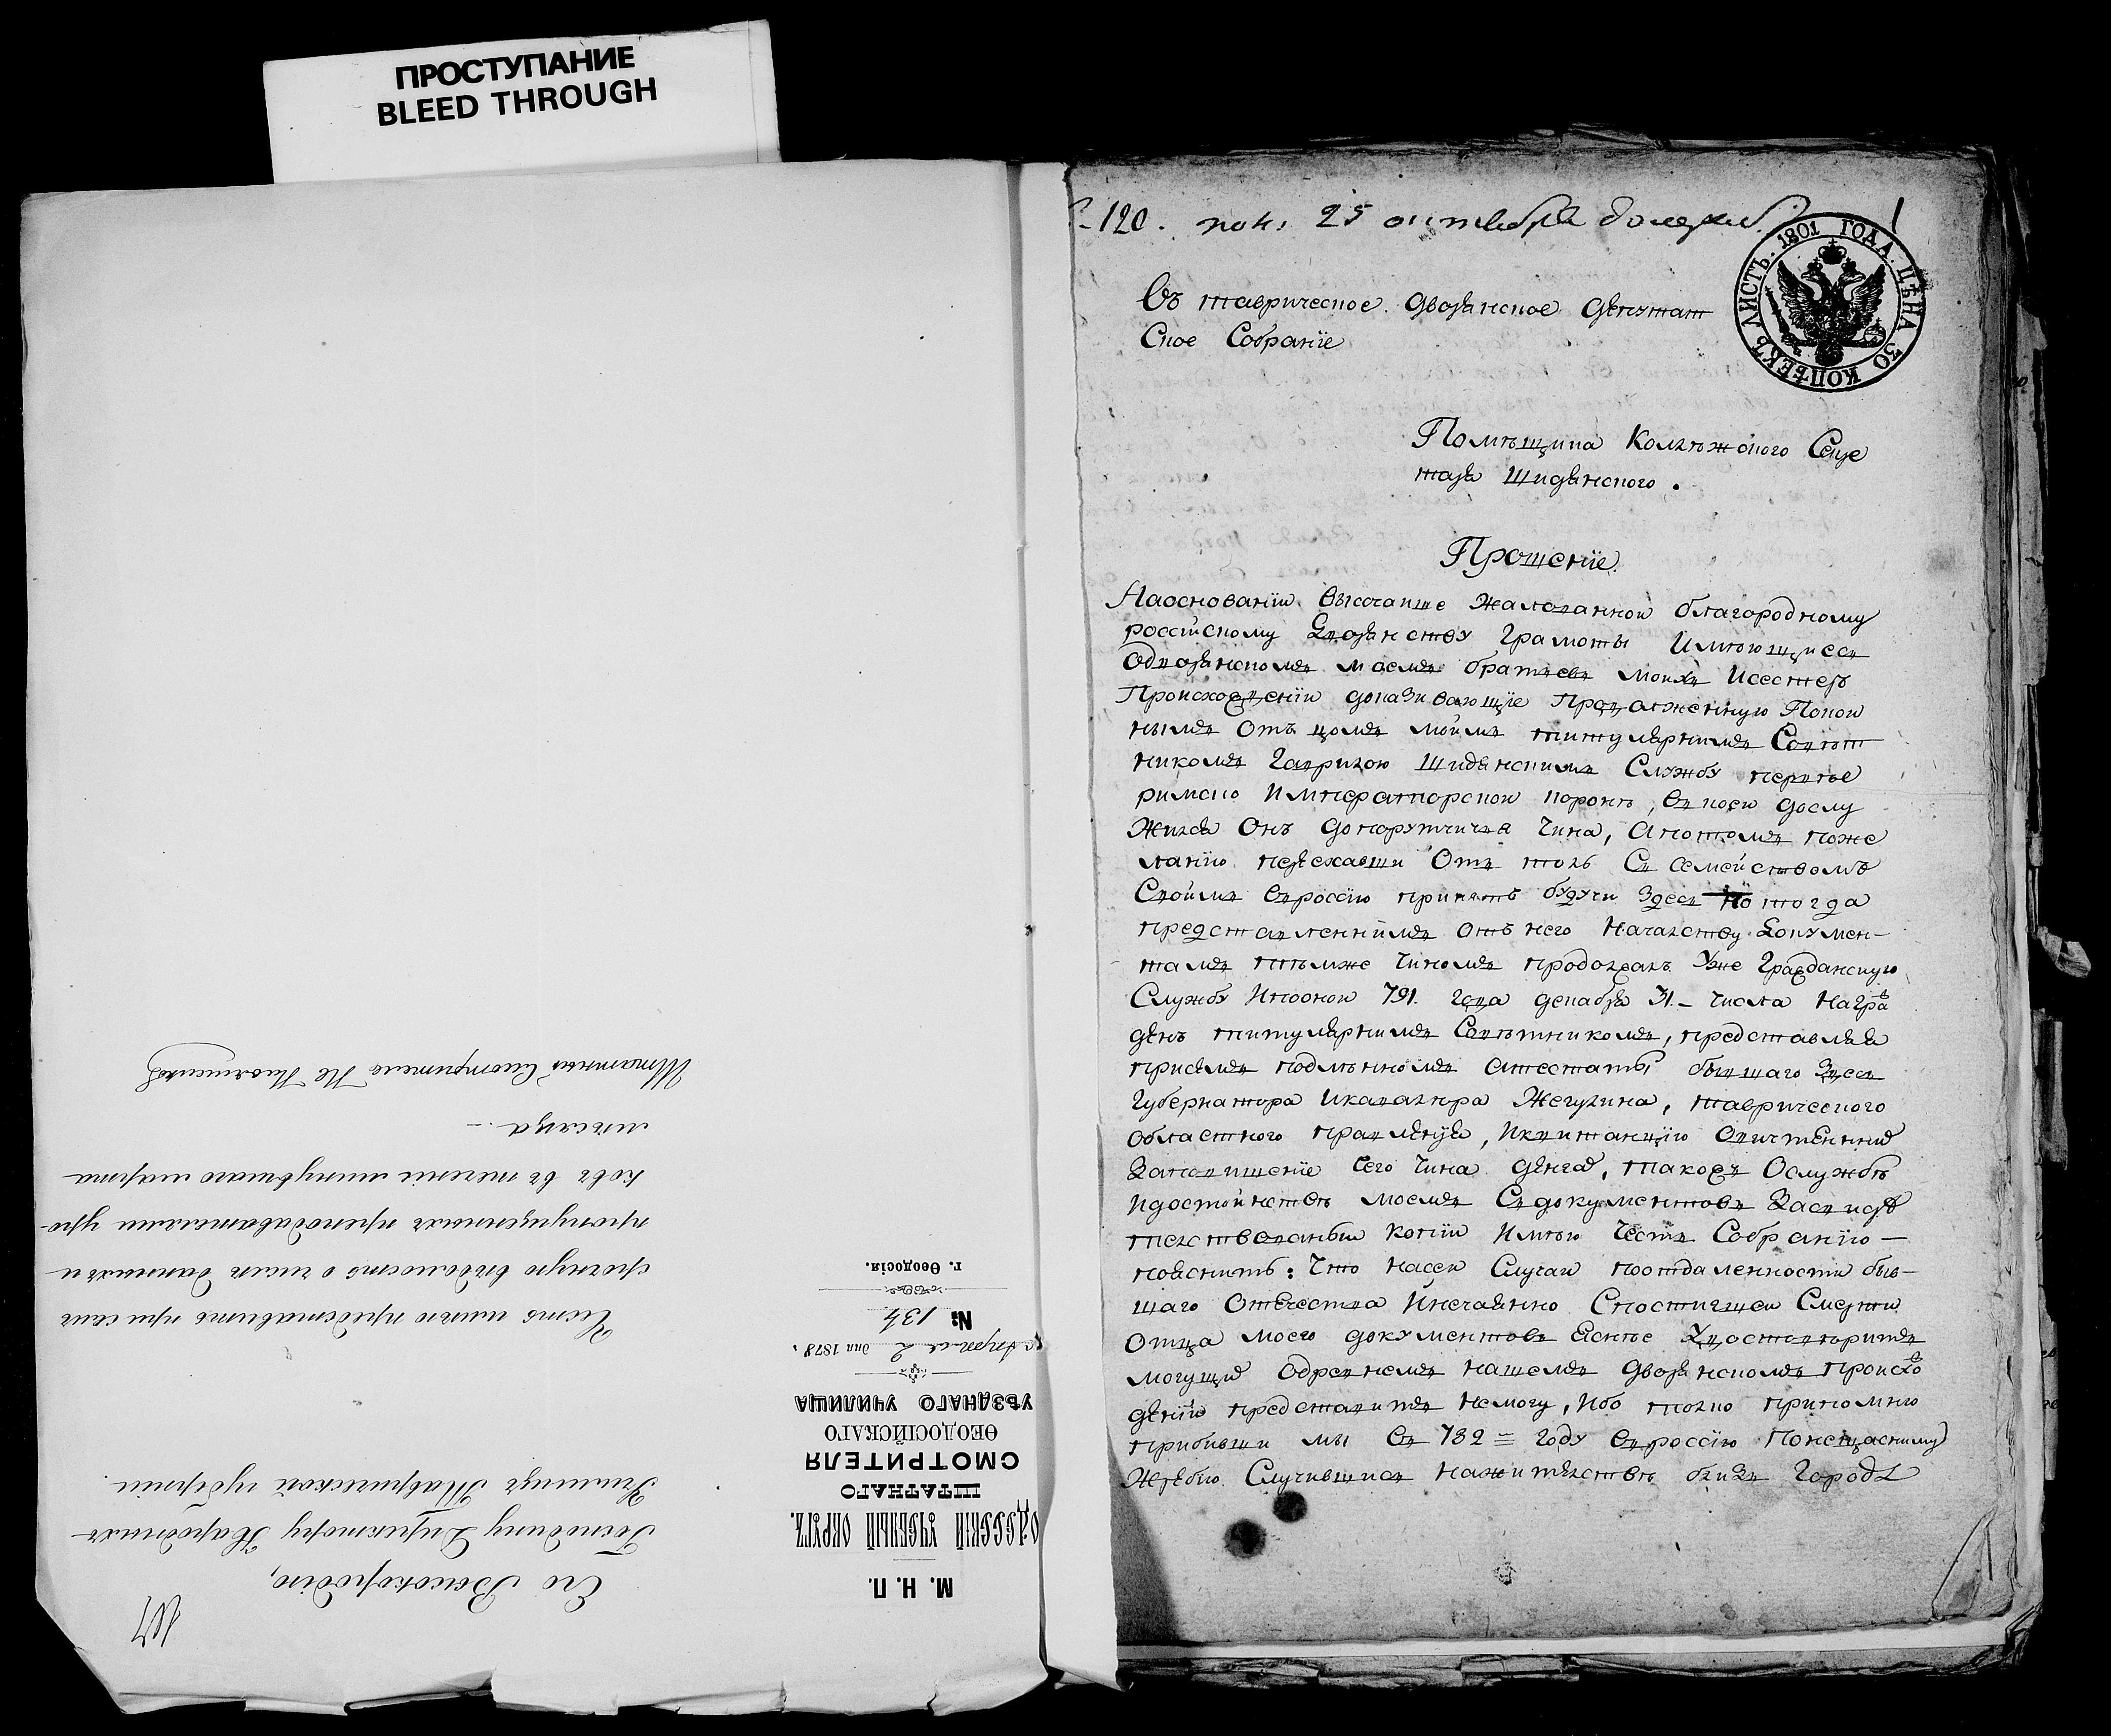 ПРОСТУПАНИЕ
BLEED THROUGH
М. Н. П.
ОДЕССКІЙ УЧЕБНЫЙ ОКРУГЪ.
ШТАТНАГО
СМОТРИТЕЛЯ
ѲЕОДОСІЙСКАГО
УѢЗДНАГО УЧИЛИЩА
Апрѣля 2 дня 1878.
№ 134
г. Ѳеодосія.
Его Высокородію,
Господину Директору Народныхъ
Училищъ Таврической губерніи.
Честь имѣю представить при семъ
срочную вѣдомость о числѣ данныхъ и
пропущенныхъ преподавателями уро-
ковъ въ теченіи минувшаго марта
мѣсяца. -
Штатный Смотритель
120. 25 октебря
1
1801 ГОДА. ЦѢНА 30 КОПѢЕКЪ ЛИСТЪ.
Въ таврическое дворянское депутат
ское Собраніе
Помѣщика Колѣжского Секре
таря Шидянского.
Прошеніе
На основаніи высочаише жалованнои благородному
россійскому Дворянству Грамоты Имѣющиеся
Одворянскомъ моемъ братьевъ моихъ Исестеръ
Происхождѣніи доказивающіе Продолженную Покои
нымъ Отъцомъ моимъ титулярнимъ Совѣт
никомъ Гаврилою Шидянскимъ Службу первѣе
римско Императорскои коронѣ, въ коеи дослу
жился Онъ до порутчичья Чина, Апотомъ поже
ланію переехавши Отъ толь Съ семействомъ
Своимъ въроссію принятъ будучи Здесь по тогда
представленнимъ отъ него Началству Докумен-
тамъ тѣмже Чиномъ продолжалъ Уже Гражданскую
Службу Ипоонои 791. года декабря 31- числа Награ
денъ титулярнимъ Совѣтникомъ, представляя
присемъ подлѣнномъ атестаты бывшаго Здесь
Губернатора Икавалѣра Жегулина, таврического
областного правленія, Иквитанцію Овичтенние
Заповишеніе сего Чина денгъ, такожъ Ослужбѣ
Идостойнствѣ моемъ Съ документовъ Засвидѣ
телствованые копіи Имѣю Честь Собранію -
пояснить: Что насеи Случаи поотдаленности быв-
шаго Отечества Инечаянно Спостигшеи Смерти
Отца моего документовъ Яснѣе Удостовѣрить
могущие Одревнемъ нашемъ дворянскомъ происхо
деніи представить немогу, Ибо толко припомню
прибивши мы въ 782 = году въроссію Понещасному
Жребію Случившися нажителствѣ близъ Города